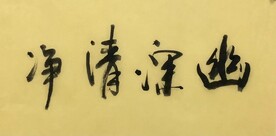 幽深清净